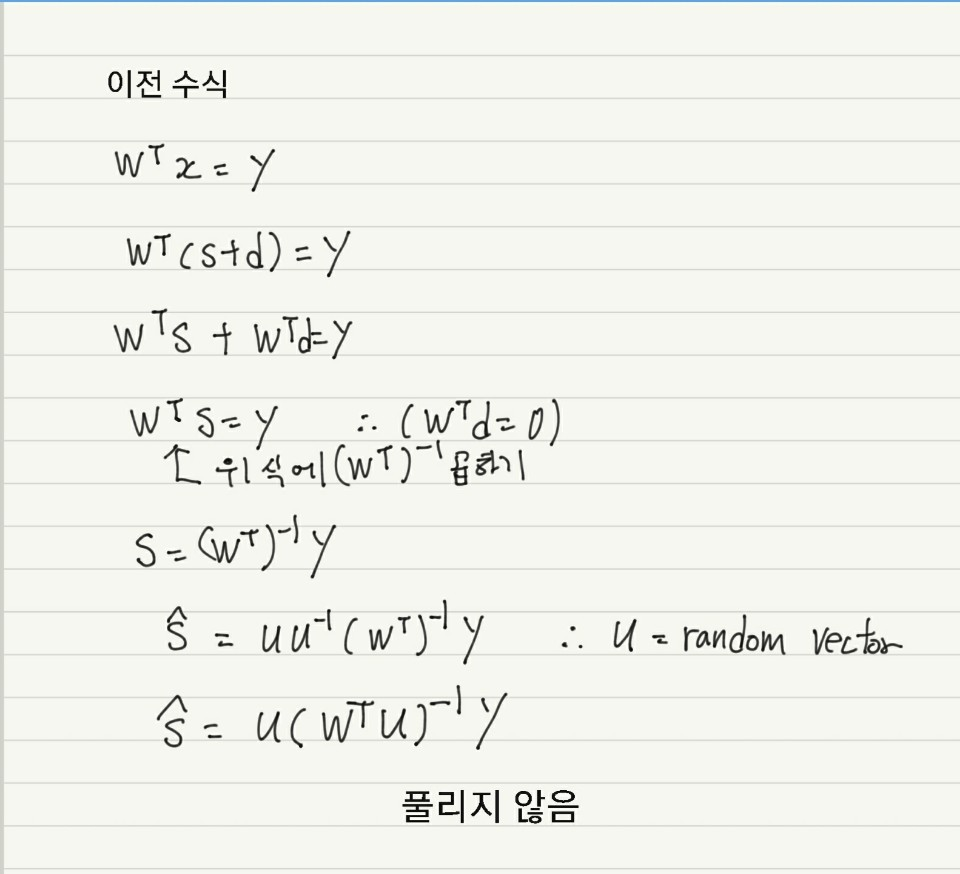 이전 수식
Wᵀx = Y
Wᵀ(s+d) = Y
WᵀS + Wᵀd = Y
WᵀS = Y ∴ (Wᵀd = 0)
↑ 위 식에 (Wᵀ)⁻¹ 곱하기
S = (Wᵀ)⁻¹Y
Ŝ = UU⁻¹(Wᵀ)⁻¹Y ∴ U = random vector
Ŝ = U(WᵀU)⁻¹Y
풀리지 않음